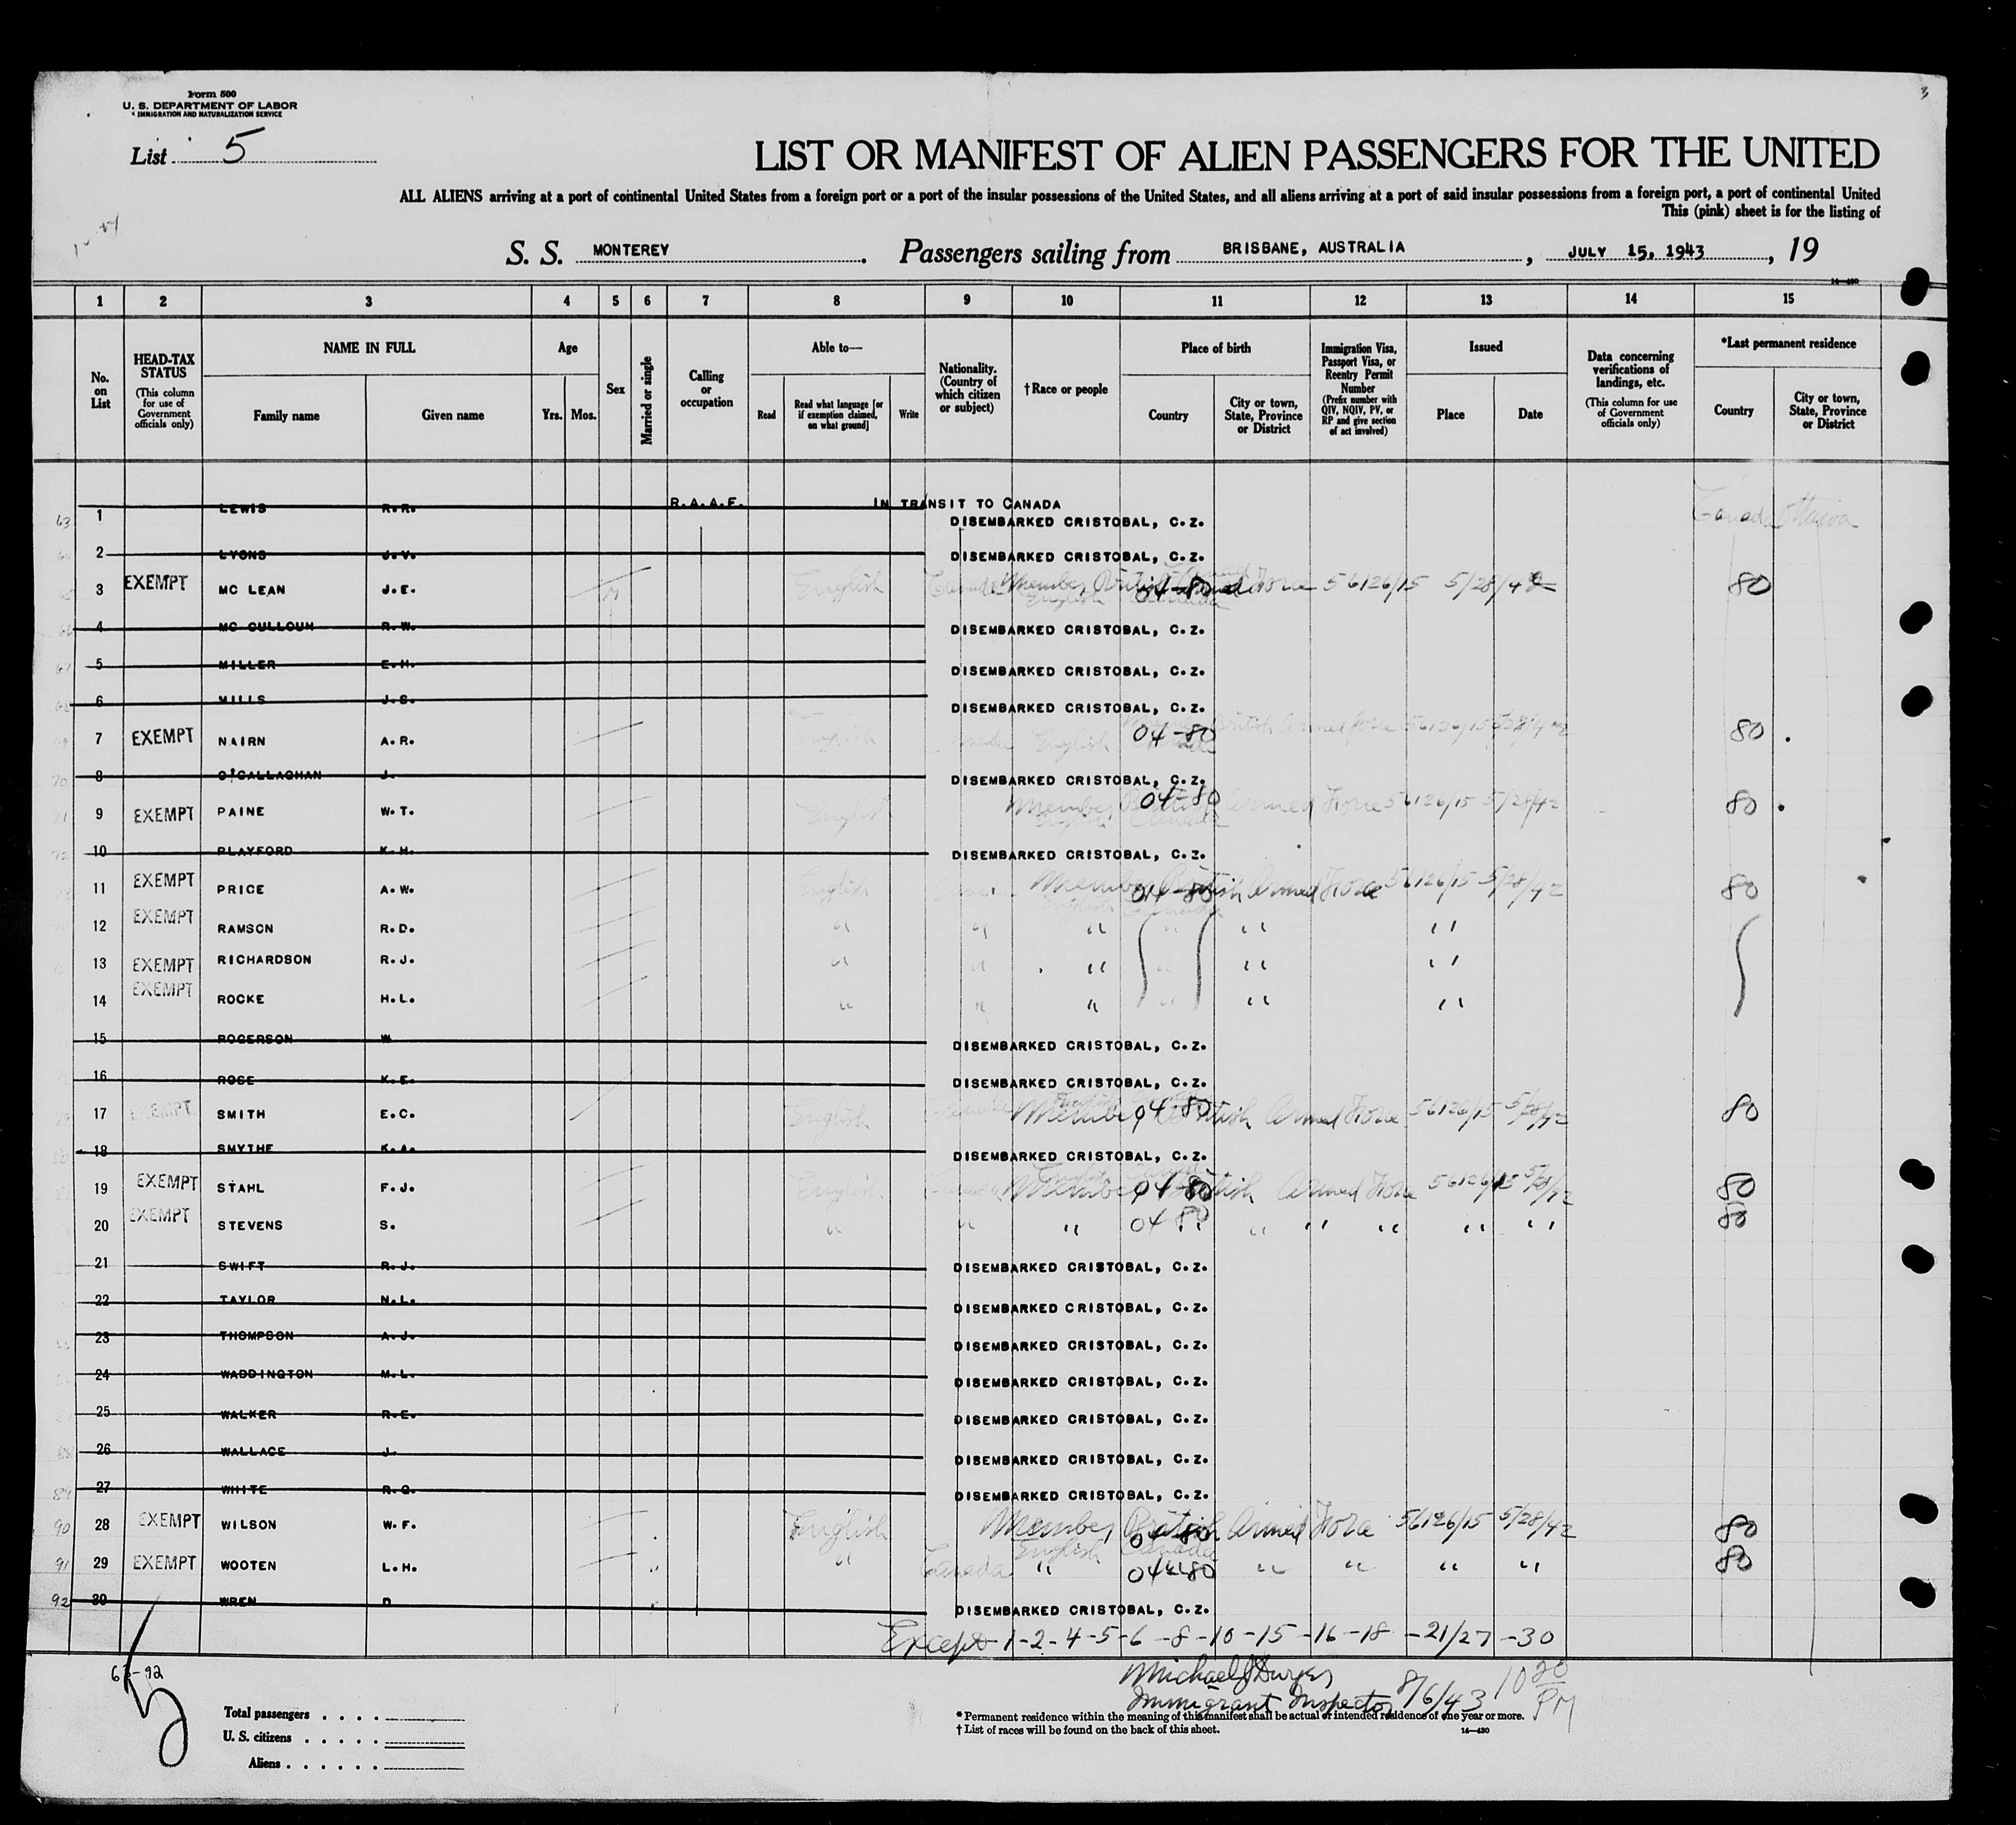 Form 500
U. S. DEPARTMENT OF LABOR
IMMIGRATION AND NATURALIZATION SERVICE
3
List 5
LIST OR MANIFEST OF ALIEN PASSENGERS FOR THE UNITED
ALL ALIENS arriving at a port of continental United States from a foreign port or a port of the insular possessions of the United States, and all aliens arriving at a port of said insular possessions from a foreign port, a port of continental United
This (pink) sheet is for the listing of
S. S. MONTEREY. Passengers sailing from BRISBANE, AUSTRALIA, JULY 15, 1943, 19
14—430
1 2 3 4 5 6 7 8 9 10 11 12 13 14 15
No. on List
HEAD-TAX STATUS (This column for use of Government officials only)
NAME IN FULL
Family name Given name
Age
Yrs. Mos.
Sex
Married or single
Calling or occupation
Able to—
Read Read what language [or if exemption claimed, on what ground] Write
Nationality. (Country of which citizen or subject)
†Race or people
Place of birth
Country City or town, State, Province or District
Immigration Visa, Passport Visa, or Reentry Permit Number (Prefix number with QIV, NQIV, PV, or RP and give section of act involved)
Issued
Place Date
Data concerning verifications of landings, etc. (This column for use of Government officials only)
*Last permanent residence
Country City or town, State, Province or District
63 1 LEWIS R.R. R.A.A.F. IN TRANSIT TO CANADA Canada Ottawa
DISEMBARKED CRISTOBAL, C.Z.
2 LYONS J.V. DISEMBARKED CRISTOBAL, C.Z.
3 EXEMPT MC LEAN J.E. M English Canada Member British Armed Force 56126/15 5/28/42 80
English 04-80 Canada
4 MC CULLOUH R.W. DISEMBARKED CRISTOBAL, C.Z.
67 5 MILLER E.H. DISEMBARKED CRISTOBAL, C.Z.
6 MILLS J.S. DISEMBARKED CRISTOBAL, C.Z.
7 EXEMPT NAIRN A.R. English English 04-80 British Armed Force 56126/15 5/28/42 80
70 8 O'CALLAGHAN J. DISEMBARKED CRISTOBAL, C.Z.
71 9 EXEMPT PAINE W.T. English Member 04-80 Armed Force 56126/15 5/28/42 80
English Canada
72 10 PLAYFORD K.H. DISEMBARKED CRISTOBAL, C.Z.
11 EXEMPT PRICE A.W. English Member British Armed Force 56126/15 5/28/42 80
04-80
English Canada
12 EXEMPT RAMSON R.D. " " " " " "
13 EXEMPT RICHARDSON R.J. " " " " " "
14 EXEMPT ROCKE H.L. " " " " " "
15 ROGERSON W DISEMBARKED CRISTOBAL, C.Z.
16 ROSE K.E. DISEMBARKED CRISTOBAL, C.Z.
17 EXEMPT SMITH E.C. English Member 04-80 British Armed Force 56126/15 5/28/42 80
18 SMYTHE K.A. DISEMBARKED CRISTOBAL, C.Z.
19 EXEMPT STAHL F.J. English Canada Member 04-80 British Armed Force 56126/15 80
20 EXEMPT STEVENS S. " " " 04-80 " " " " " " 80
21 SWIFT R.J. DISEMBARKED CRISTOBAL, C.Z.
22 TAYLOR N.L. DISEMBARKED CRISTOBAL, C.Z.
23 THOMPSON A.J. DISEMBARKED CRISTOBAL, C.Z.
24 WADDINGTON M.L. DISEMBARKED CRISTOBAL, C.Z.
25 WALKER R.E. DISEMBARKED CRISTOBAL, C.Z.
88 26 WALLACE J. DISEMBARKED CRISTOBAL, C.Z.
89 27 WHITE R.G. DISEMBARKED CRISTOBAL, C.Z.
90 28 EXEMPT WILSON W.F. English Member British Armed Force 56126/15 5/28/42 80
04-80
English Canada
91 29 EXEMPT WOOTEN L.H. " Canada " 04-80 " " " " 80
92 30 WREN D DISEMBARKED CRISTOBAL, C.Z.
Except-1-2-4-5-6-8-10-15-16-18-21/27-30
63-92
5
Immigrant Inspector 8/6/43 10 20 PM
Total passengers . . . .
U. S. citizens . . . . .
Aliens . . . . . .
* Permanent residence within the meaning of this manifest shall be actual or intended residence of one year or more.
† List of races will be found on the back of this sheet.
14—430